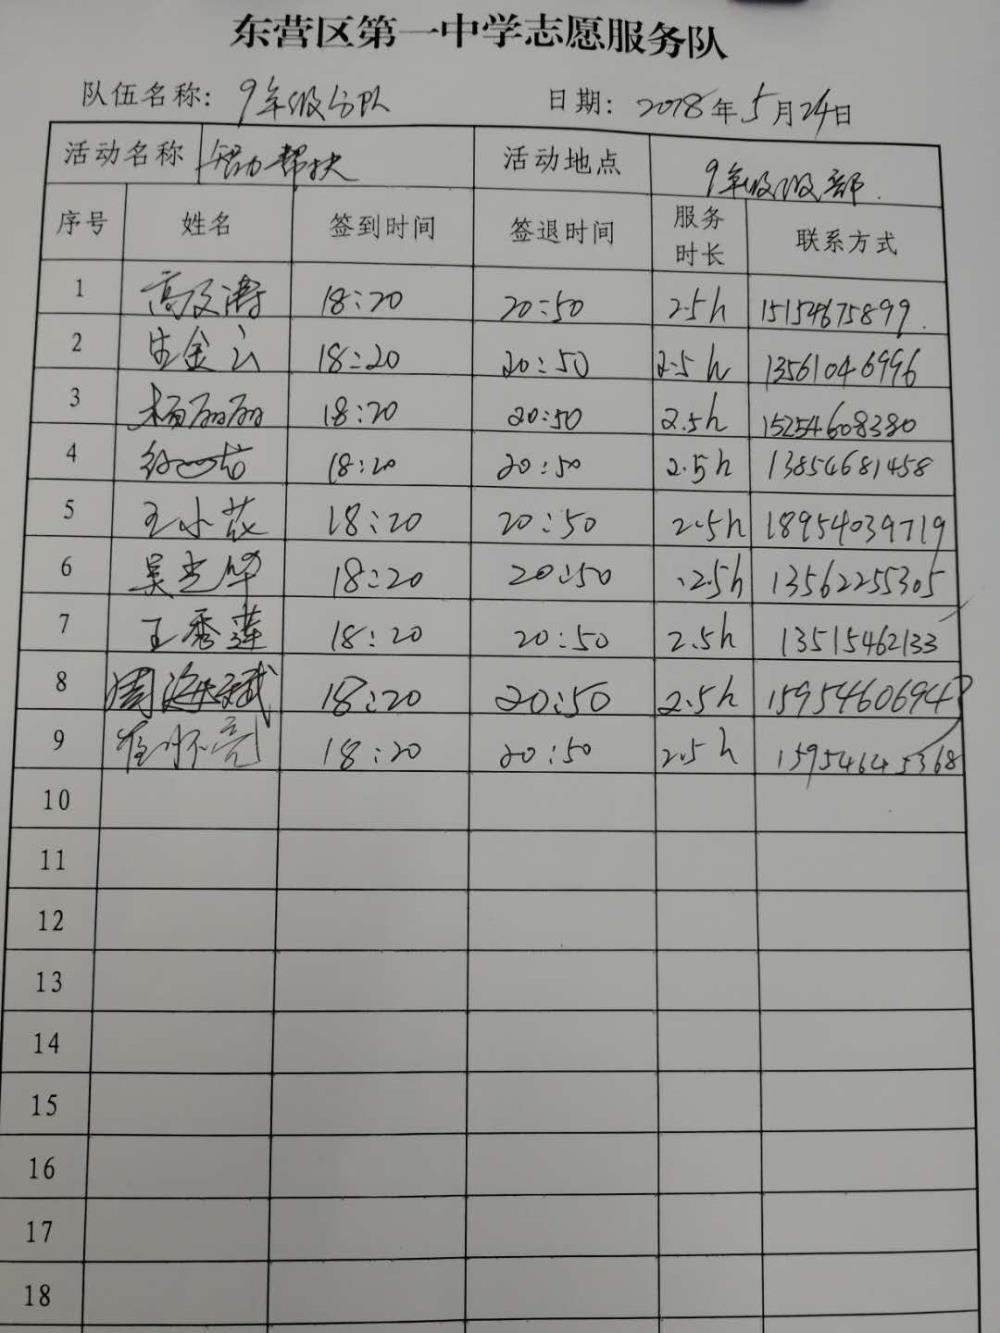 东营区第一中学志愿服务队
队伍名称: 9年级分队 日期: 2018年5月24日
活动名称 帮扶 活动地点 9年级级部
序号 姓名 签到时间 签退时间 服务时长 联系方式
1 18:20 20:50 2.5h 15154675899
2 生金云 18:20 20:50 2.5h 13561046996
3 杨丽丽 18:20 20:50 2.5h 15254608380
4 18:20 20:50 2.5h 13854681458
5 王小花 18:20 20:50 2.5h 18954039719
6 吴光华 18:20 20:50 2.5h 13562255305
7 王秀莲 18:20 20:50 2.5h 13515462133
8 周海斌 18:20 20:50 2.5h 15954606943
9 崔怀亮 18:20 20:50 2.5h 15954645368
10
11
12
13
14
15
16
17
18